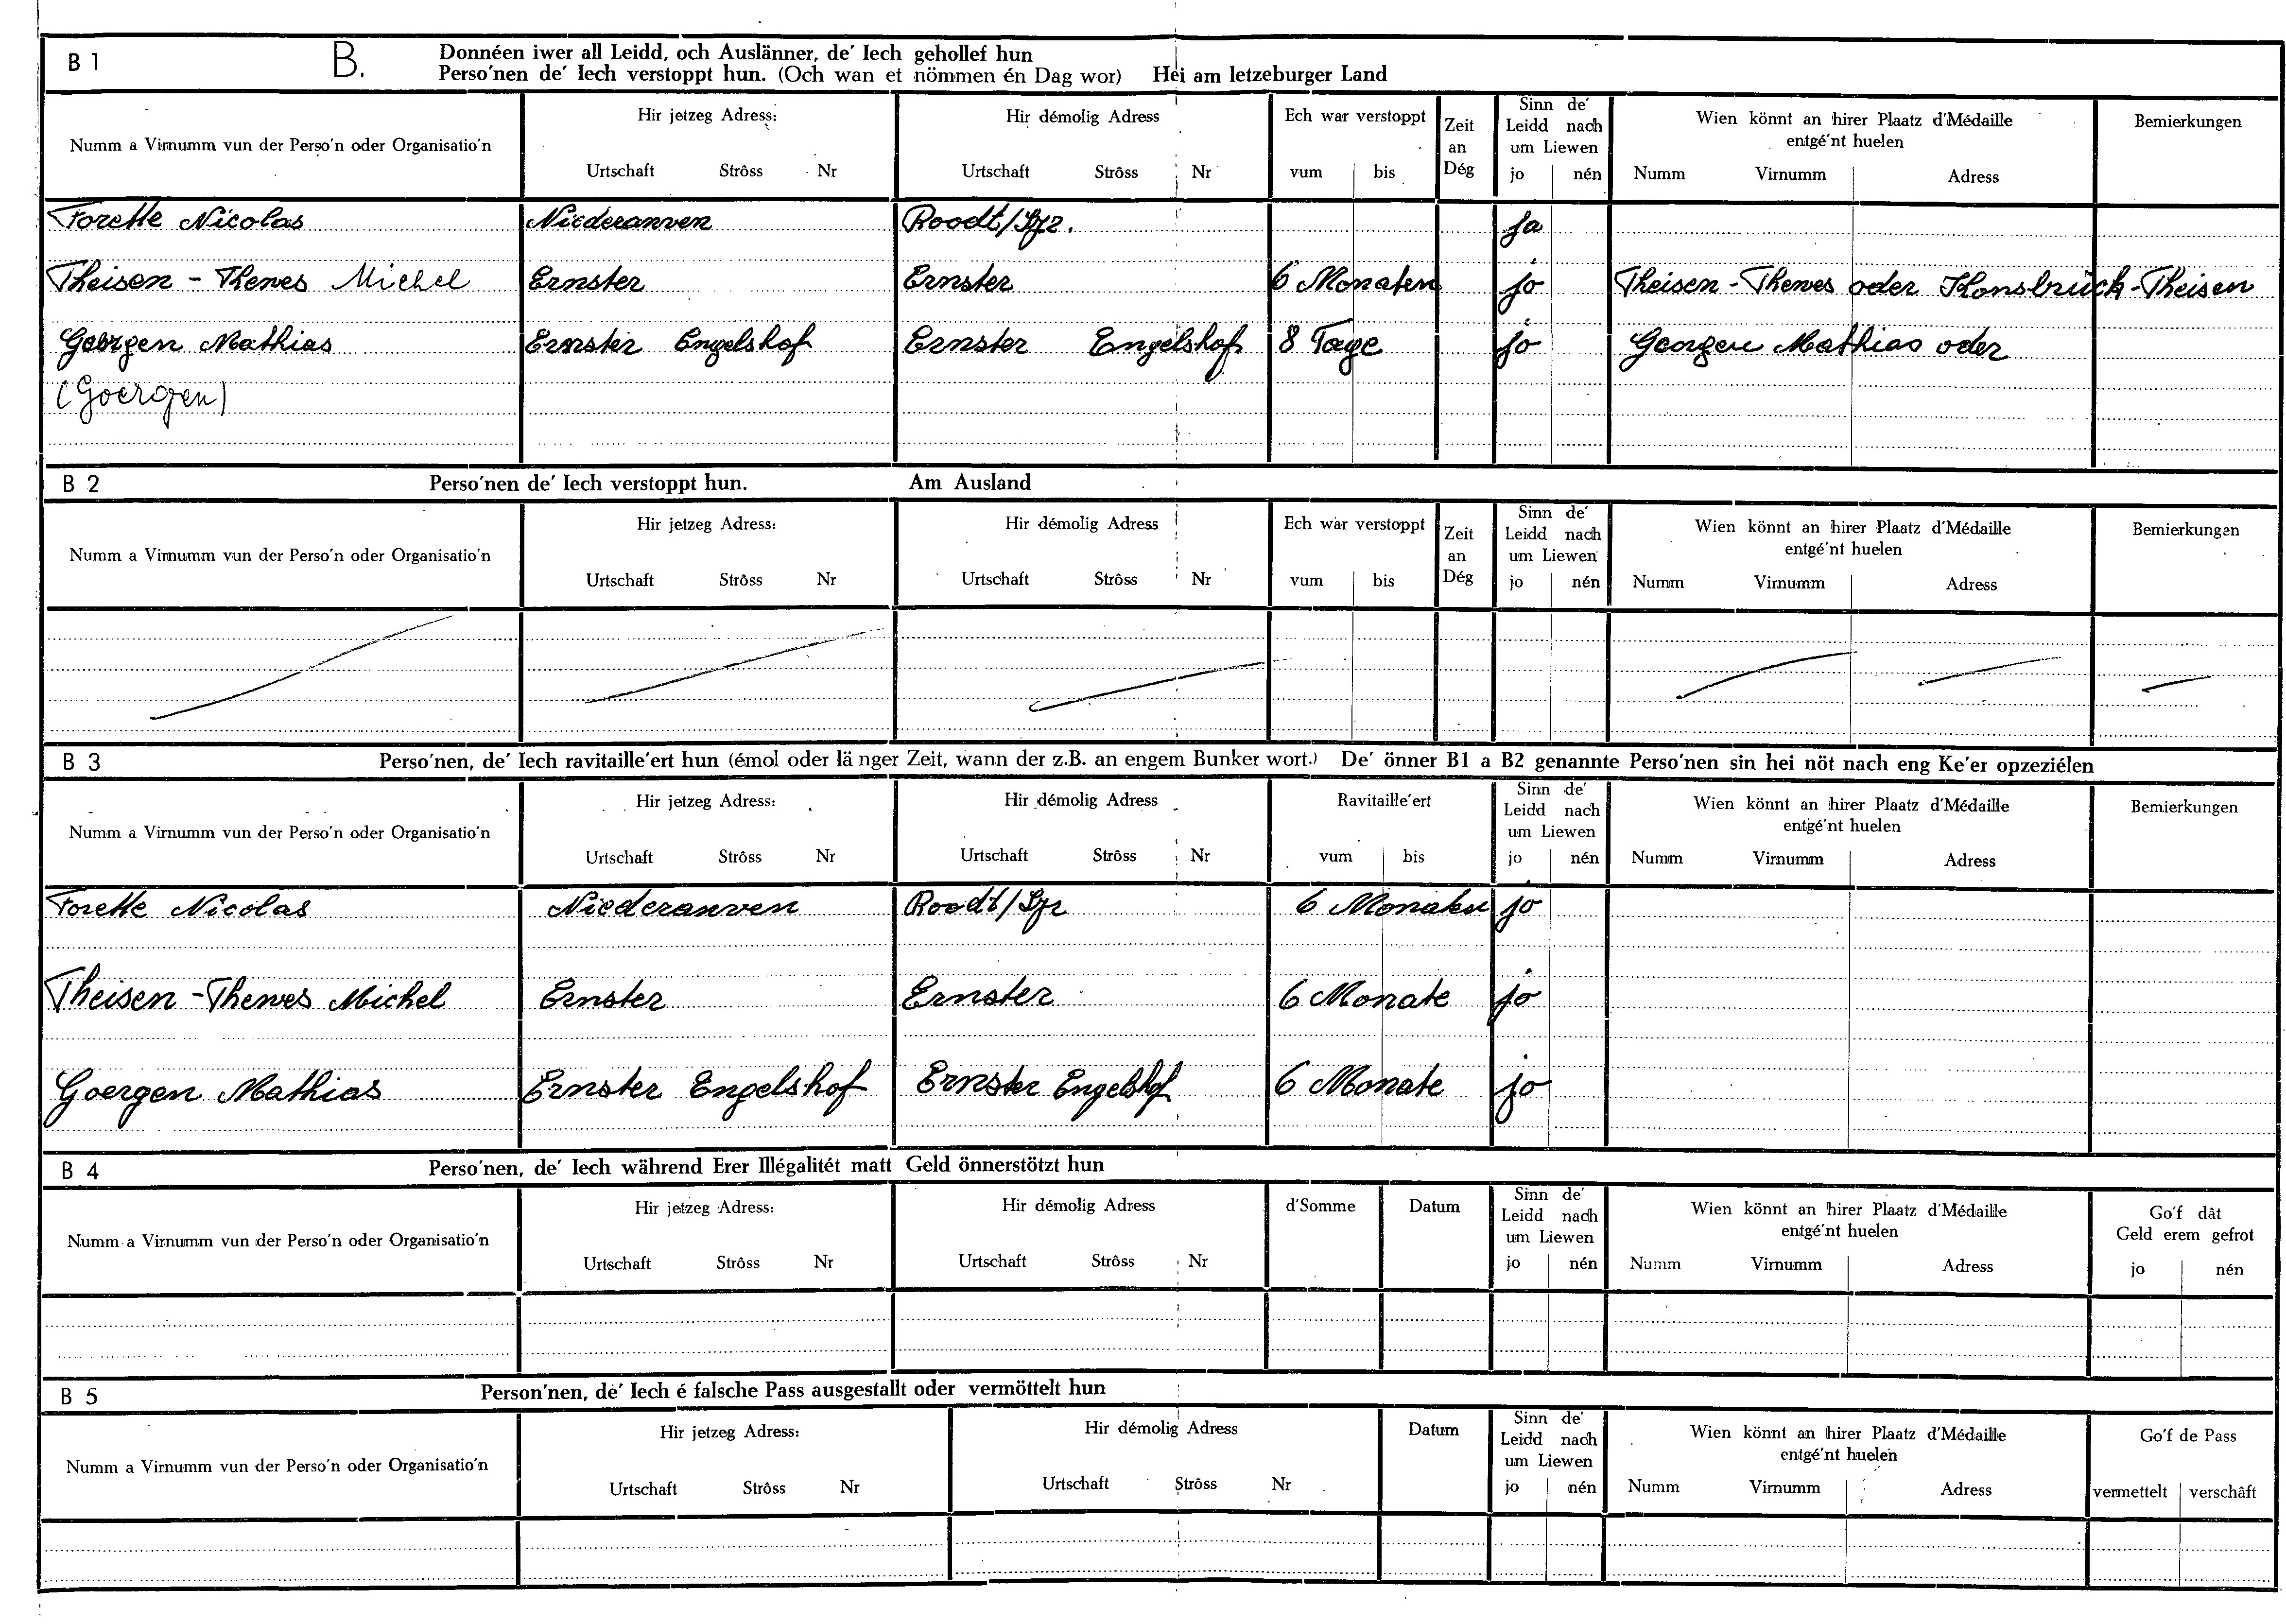 B 1 B. Donnéen iwer all Leidd, och Auslänner, de' Iech gehollef hun
Perso'nen de' Iech verstoppt hun. (Och wan et nömmen én Dag wor) Hei am letzeburger Land
Numm a Virnumm vun der Perso'n oder Organisatio'n
Hir jetzeg Adress:
Urtschaft Strôss Nr
Hir démolig Adress
Urtschaft Strôss Nr
Ech war verstoppt
vum bis
Zeit
an
Dég
Sinn de'
Leidd nach
um Liewen
jo nén
Wien könnt an hirer Plaatz d'Médaille
entgé'nt huelen
Numm Virnumm Adress
Bemierkungen
Forette Nicolas Niederanven Roodt/Syr. ja
Theisen - Thewes Michel Ernster Ernster 6 Monaten jo Theisen - Thewes oder Honsbrück-Theisen
Goergen Mathias Ernster Engelshof Ernster Engelshof 8 Tage jo Goergen Mathias oder
(Goergen)
B 2 Perso'nen de' Iech verstoppt hun. Am Ausland
Numm a Virnumm vun der Perso'n oder Organisatio'n
Hir jetzeg Adress:
Urtschaft Strôss Nr
Hir démolig Adress
Urtschaft Strôss Nr
Ech war verstoppt
vum bis
Zeit
an
Dég
Sinn de'
Leidd nach
um Liewen
jo nén
Wien könnt an hirer Plaatz d'Médaille
entgé'nt huelen
Numm Virnumm Adress
Bemierkungen
B 3 Perso'nen, de' Iech ravitaille'ert hun (émol oder länger Zeit, wann der z.B. an engem Bunker wort.) De' önner B1 a B2 genannte Perso'nen sin hei nöt nach eng Ke'er opzeziélen
Numm a Virnumm vun der Perso'n oder Organisatio'n
Hir jetzeg Adress:
Urtschaft Strôss Nr
Hir démolig Adress
Urtschaft Strôss Nr
Ravitaille'ert
vum bis
Sinn de'
Leidd nach
um Liewen
jo nén
Wien könnt an hirer Plaatz d'Médaille
entgé'nt huelen
Numm Virnumm Adress
Bemierkungen
Forette Nicolas Niederanven Roodt/Syr 6 Monaten jo
Theisen - Thewes Michel Ernster Ernster 6 Monate jo
Goergen Mathias Ernster Engelshof Ernster Engelshof 6 Monate jo
B 4 Perso'nen, de' Iech während Erer Illégalitét matt Geld önnerstötzt hun
Numm a Virnumm vun der Perso'n oder Organisatio'n
Hir jetzeg Adress:
Urtschaft Strôss Nr
Hir démolig Adress
Urtschaft Strôss Nr
d'Somme
Datum
Sinn de'
Leidd nach
um Liewen
jo nén
Wien könnt an hirer Plaatz d'Médaille
entgé'nt huelen
Numm Virnumm Adress
Go'f dât
Geld erem gefrot
jo nén
B 5 Person'nen, de' Iech é falsche Pass ausgestallt oder vermöttelt hun
Numm a Virnumm vun der Perso'n oder Organisatio'n
Hir jetzeg Adress:
Urtschaft Strôss Nr
Hir démolig Adress
Urtschaft Strôss Nr
Datum
Sinn de'
Leidd nach
um Liewen
jo nén
Wien könnt an hirer Plaatz d'Médaille
entgé'nt huelen
Numm Virnumm Adress
Go'f de Pass
vermettelt verschâft